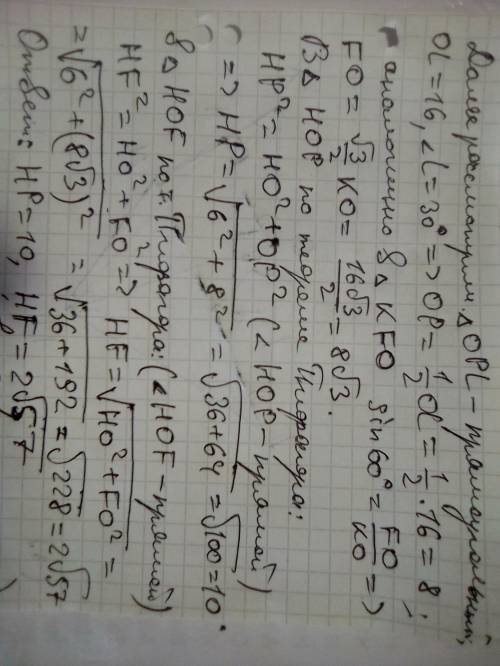 Далее рассмотрим △OPL - прямоугольный,
OL = 16, ∠L = 30° => OP = 1/2 OL = 1/2 · 16 = 8;
аналогично в △KFO sin 60° = FO/KO =>
FO = √3/2 KO = 16√3/2 = 8√3.
В △ HOP по теореме Пифагора:
HP² = HO² + OP² (∠ HOP - прямой)
=> HP = √6² + 8² = √36+64 = √100 = 10.
в △ HOF по т. Пифагора: (∠HOF - прямой)
HF² = HO² + FO² => HF = √HO² + FO² =
= √6² + (8√3)² = √36 + 192 = √228 = 2√57
Ответ: HP = 10, HF = 2√57